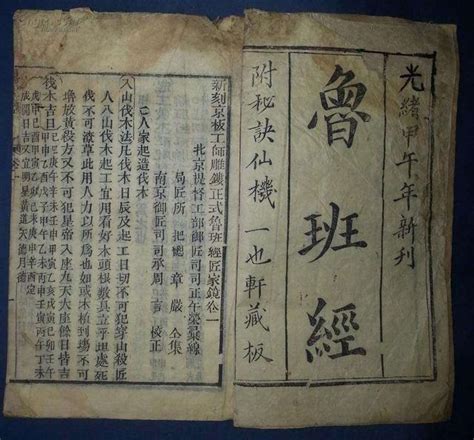 光緒甲午年新刊
魯班經
附秘訣仙機 一也軒藏板
新刻京板工師雕鏤正式魯班經匠家鏡卷一
北京提督工部御匠司司正午榮彙編
局匠所 把總 章嚴 仝集
南京御匠司司承周言 校正
人家起造伐木
入山伐木法凡伐木日辰及起工日切不可犯穿山殺匠
人入山伐木起工宜用看好木頭根數具立平坦處斫
伐不可潦草此用人力以所為也如或木植到場不可
堆放黃殺方又不可犯皇帝八座九天大座餘日皆吉
伐木吉日